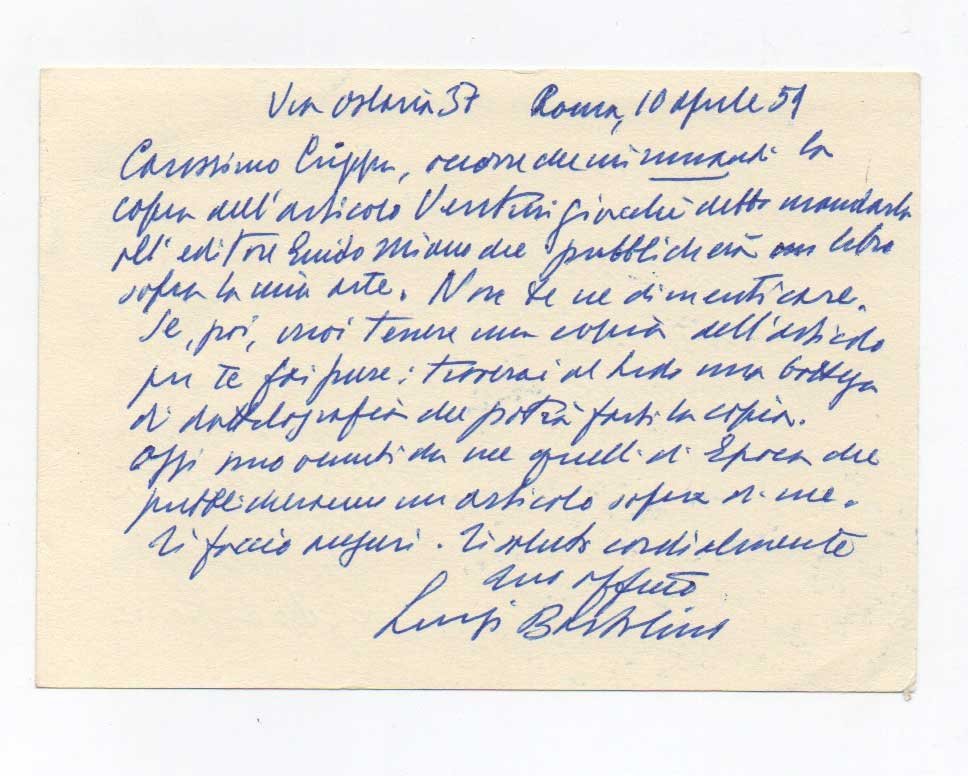 Via Oslavia 37 Roma, 10 aprile 59
Carissimo Crippa, occorre che mi rimandi la
copia dell'articolo Venturi giacché debbo mandarla
all'editore Guido Miano che pubblicherà un libro
sopra la mia arte. Non te ne dimenticare.
Se, poi, vuoi tenere una copia dell'articolo
per te fai pure: troverai al Lido una bottega
di dattilografia che potrà farti la copia.
Oggi sono venuti da me quelli di Epoca che
pubblicheranno un articolo sopra di me.
Ti faccio auguri. Ti saluto cordialmente
tuo aff.mo
Luigi Bartolini